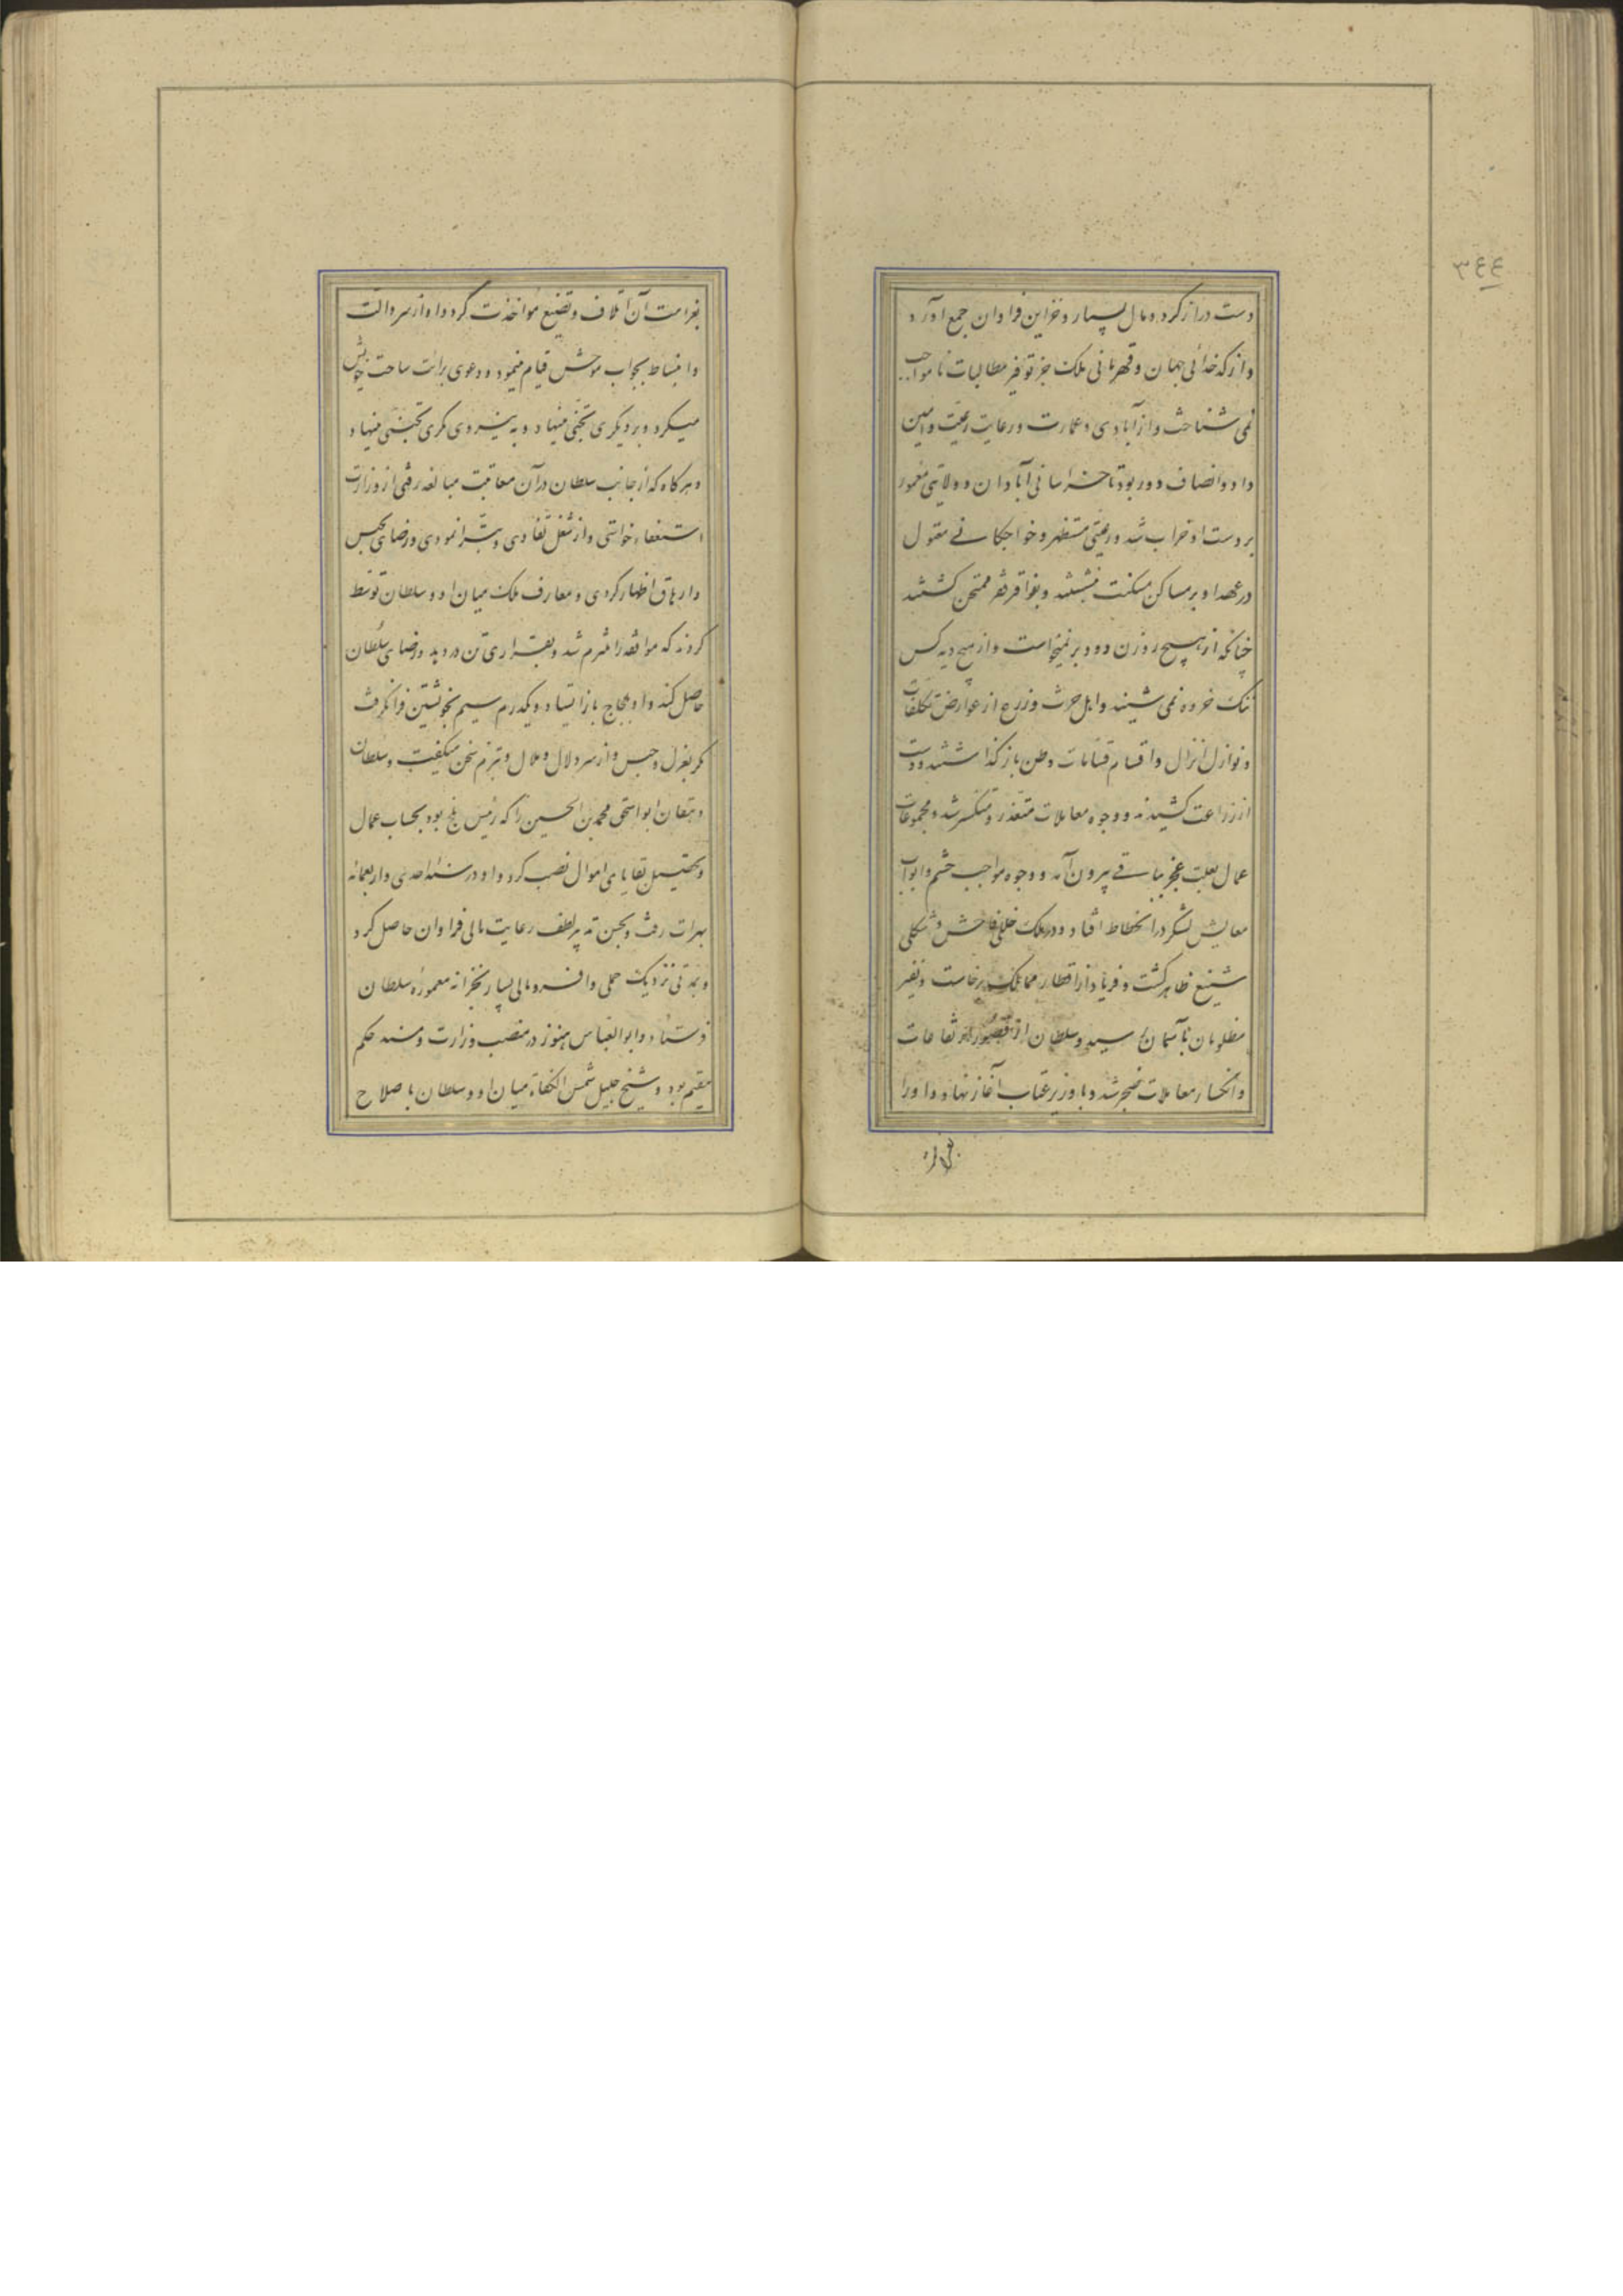 ٣٤٤
دست دراز کرد و مال بسیار و خزاین فراوان جمع آورد
و از کدخدائی جهان و قهرمانی ملک جز توفیر مطالبات نا مواجب
نمی شناخت و از آبادی و عمارت و رعایت رعیت و آیین
داد و انصاف دور بود تا خراسانی آبادان و ولایتی معمور
بر دست او خراب شد و رعیتی مستظهر و خواجکانی متمول
در عهد او بر مساکن مسکنت نشستند و بفواقر فقر ممتحن کشتند
چنانکه از هیچ روزن دود بر نمیخواست و از هیچ دیه کس
بانک خروه نمی شنید و اهل حرث و زرع از عوارض تکلفات
و نوازل انزال و اقسام قسامات وطن باز کذاشتند و دست
از زراعت کشیدند و وجوه معاملات متعذر و منکسر شد و مجموعات
عمال بعلت عجز بباقی بیرون آمد و وجوه مواجب حشم و ابواب
معایش لشکر در انحطاط افتاد و در ملک خللی فاحش و شکلی
شنیع ظاهر کشت و فریاد از اقطار ممالک برخاست و نفیر
مظلومان بآسمان رسید و سلطان از قصور ارتفاعات
و انکسار معاملات ضجر شد و با وزیر عتاب آغاز نهاد و او را
بغرامت
بغرامت آن اتلاف و تضییع مؤاخذت کرد و او از سر دالت
و انبساط بجواب موحش قیام مینمود و دعوی برائت ساحت خویش
میکرد و بر دیکری تجنی مینهاد و به نیروی مکری تجنی مینهاد
و هرکاه که از جانب سلطان در آن معاتبت مبالغه رفتی از وزارت
استعفاء خواستی و از شغل تفادی و تبرا نمودی و رضا بحبس
و ارهاق اظهار کردی و معارف ملک میان او و سلطان توسط
کردند که مواقفه را ملتزم شد و بقراری تن در دهد و رضای سلطان
حاصل کند و او بلجاج باز ایستاد و یکدرم سیم بخویشتن فرانکرفت
مکر بعزل و حبس و از سر دلال و ملال و تبرم سخن میکفت و سلطان
دهقان ابو اسحق محمد بن الحسین را که رئیس بلخ بود بحساب عمال
و تحصیل بقایای اموال نصب کرد و او در سنه احدی و اربعمائه
بهرات رفت و بحسن تدبیر و لطف رعایت مالی فراوان حاصل کرد
و بمدتی نزدیک حملی وافر و مالی بسیار بخزانه معموره سلطان
فرستاد و ابو العباس هنوز در منصب وزارت و مسند حکم
مقیم بود و شیخ جلیل شمس الکفاة میان او و سلطان باصلاح